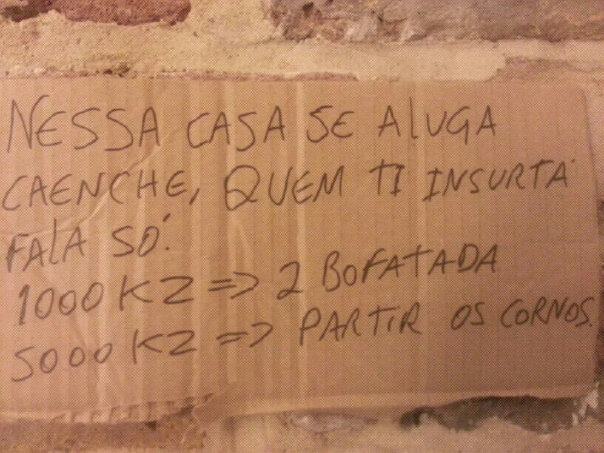 NESSA CASA SE ALUGA
CAENCHE, QUEM TI INSURTA
FALA SÓ!
1000 KZ => 2 BOFATADA
5000 KZ => PARTIR OS CORNOS.